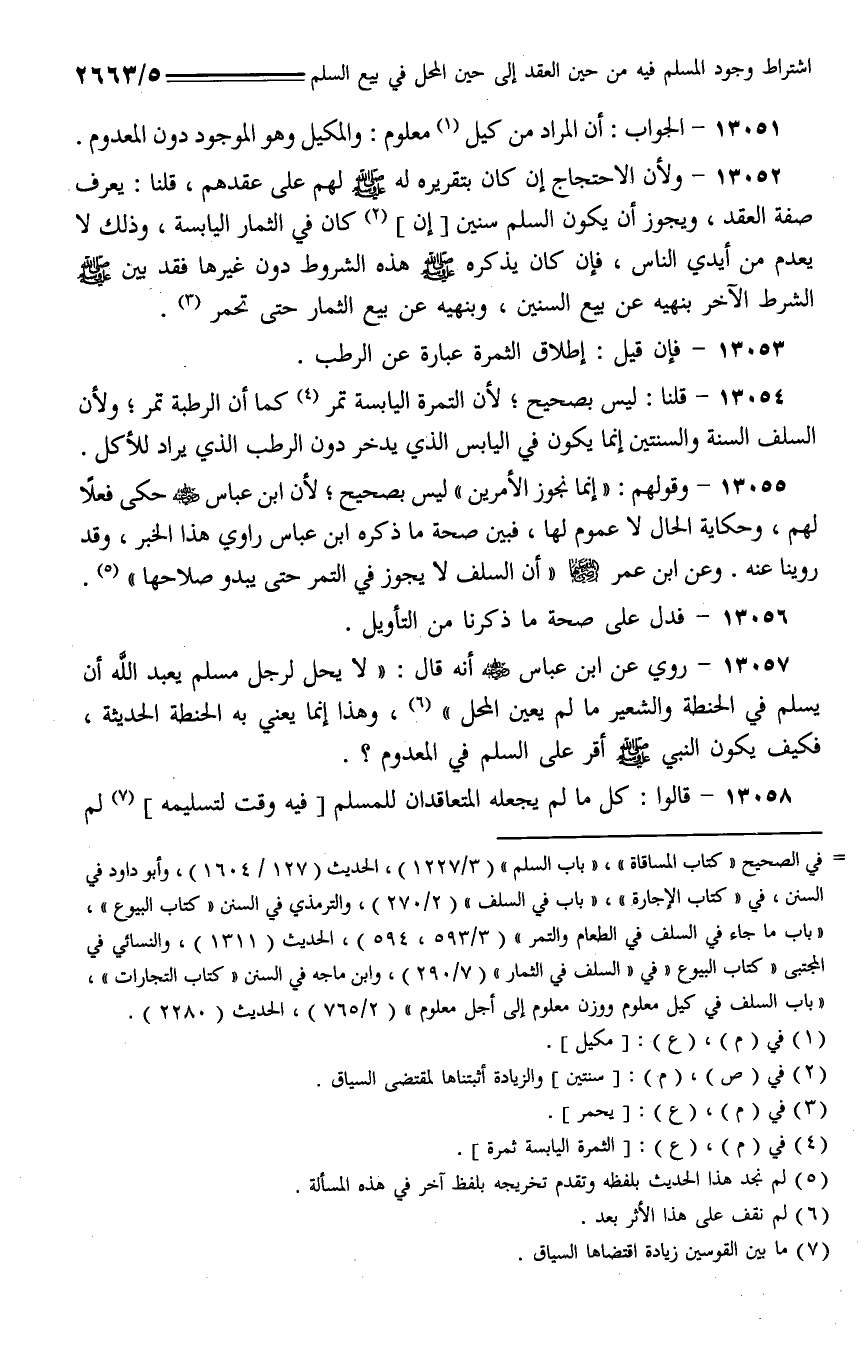 اشتراط وجود المسلم فيه من حين العقد إلى حين المحل في بيع السلم ٢٦٦٣/٥
١٣٠٥١ - الجواب : أن المراد من كيل (١) معلوم : والمكيل وهو الموجود دون المعدوم .
١٣٠٥٢ - ولأن الاحتجاج إن كان بتقريره له ﷺ لهم على عقدهم ، قلنا : يعرف
صفة العقد ، ويجوز أن يكون السلم سنين [ إن ] (٢) كان في الثمار اليابسة ، وذلك لا
يعدم من أيدي الناس ، فإن كان يذكره ﷺ هذه الشروط دون غيرها فقد بين ﷺ
الشرط الآخر بنهيه عن بيع السنين ، وبنهيه عن بيع الثمار حتى تحمر (٣) .
١٣٠٥٣ - فإن قيل : إطلاق الثمرة عبارة عن الرطب .
١٣٠٥٤ - قلنا : ليس بصحيح ؛ لأن التمرة اليابسة تمر (٤) كما أن الرطبة تمر ؛ ولأن
السلف السنة والسنتين إنما يكون في اليابس الذي يدخر دون الرطب الذي يراد للأكل .
١٣٠٥٥ - وقولهم : « إنما نجوز الأمرين » ليس بصحيح ؛ لأن ابن عباس ﷺ حكى فعلًا
لهم ، وحكاية الحال لا عموم لها ، فبين صحة ما ذكره ابن عباس راوي هذا الخبر ، وقد
روينا عنه . وعن ابن عمر « أن السلف لا يجوز في التمر حتى يبدو صلاحها » (٥) .
١٣٠٥٦ - فدل على صحة ما ذكرنا من التأويل .
١٣٠٥٧ - روي عن ابن عباس أنه قال : « لا يحل لرجل مسلم يعبد اللَّه أن
يسلم في الحنطة والشعير ما لم يعين المحل » (٦) ، وهذا إنما يعني به الحنطة الحديثة ،
فكيف يكون النبي ﷺ أقر على السلم في المعدوم ؟ .
١٣٠٥٨ - قالوا : كل ما لم يجعله المتعاقدان للمسلم [ فيه وقت لتسليمه ] (٧) لم
= في الصحيح « كتاب المساقاة » ، « باب السلم » ( ١٢٢٧/٣ ) ، الحديث ( ١٢٧ / ١٦٠٤ ) ، وأبو داود في
السنن ، في « كتاب الإجارة » ، « باب في السلف » ( ٢٧٠/٢ ) ، والترمذي في السنن « كتاب البيوع » ،
« باب ما جاء في السلف في الطعام والتمر » ( ٥٩٣/٣ ، ٥٩٤ ) ، الحديث ( ١٣١١ ) ، والنسائي في
المجتبى « كتاب البيوع » في « السلف في الثمار » ( ٢٩٠/٧ ) ، وابن ماجه في السنن « كتاب التجارات » ،
« باب السلف في كيل معلوم ووزن معلوم إلى أجل معلوم » ( ٧٦٥/٢ ) ، الحديث ( ٢٢٨٠ ) .
(١) في ( م ) ، ( ع ) : [ مكيل ] .
(٢) في ( ص ) ، ( م ) : [ سنتين ] والزيادة أثبتناها لمقتضى السياق .
(٣) في ( م ) ، ( ع ) : [ يحمر ] .
(٤) في ( م ) ، ( ع ) : [ الثمرة اليابسة ثمرة ] .
(٥) لم نجد هذا الحديث بلفظه وتقدم تخريجه بلفظ آخر في هذه المسألة .
(٦) لم نقف على هذا الأثر بعد .
(٧) ما بين القوسين زيادة اقتضاها السياق .